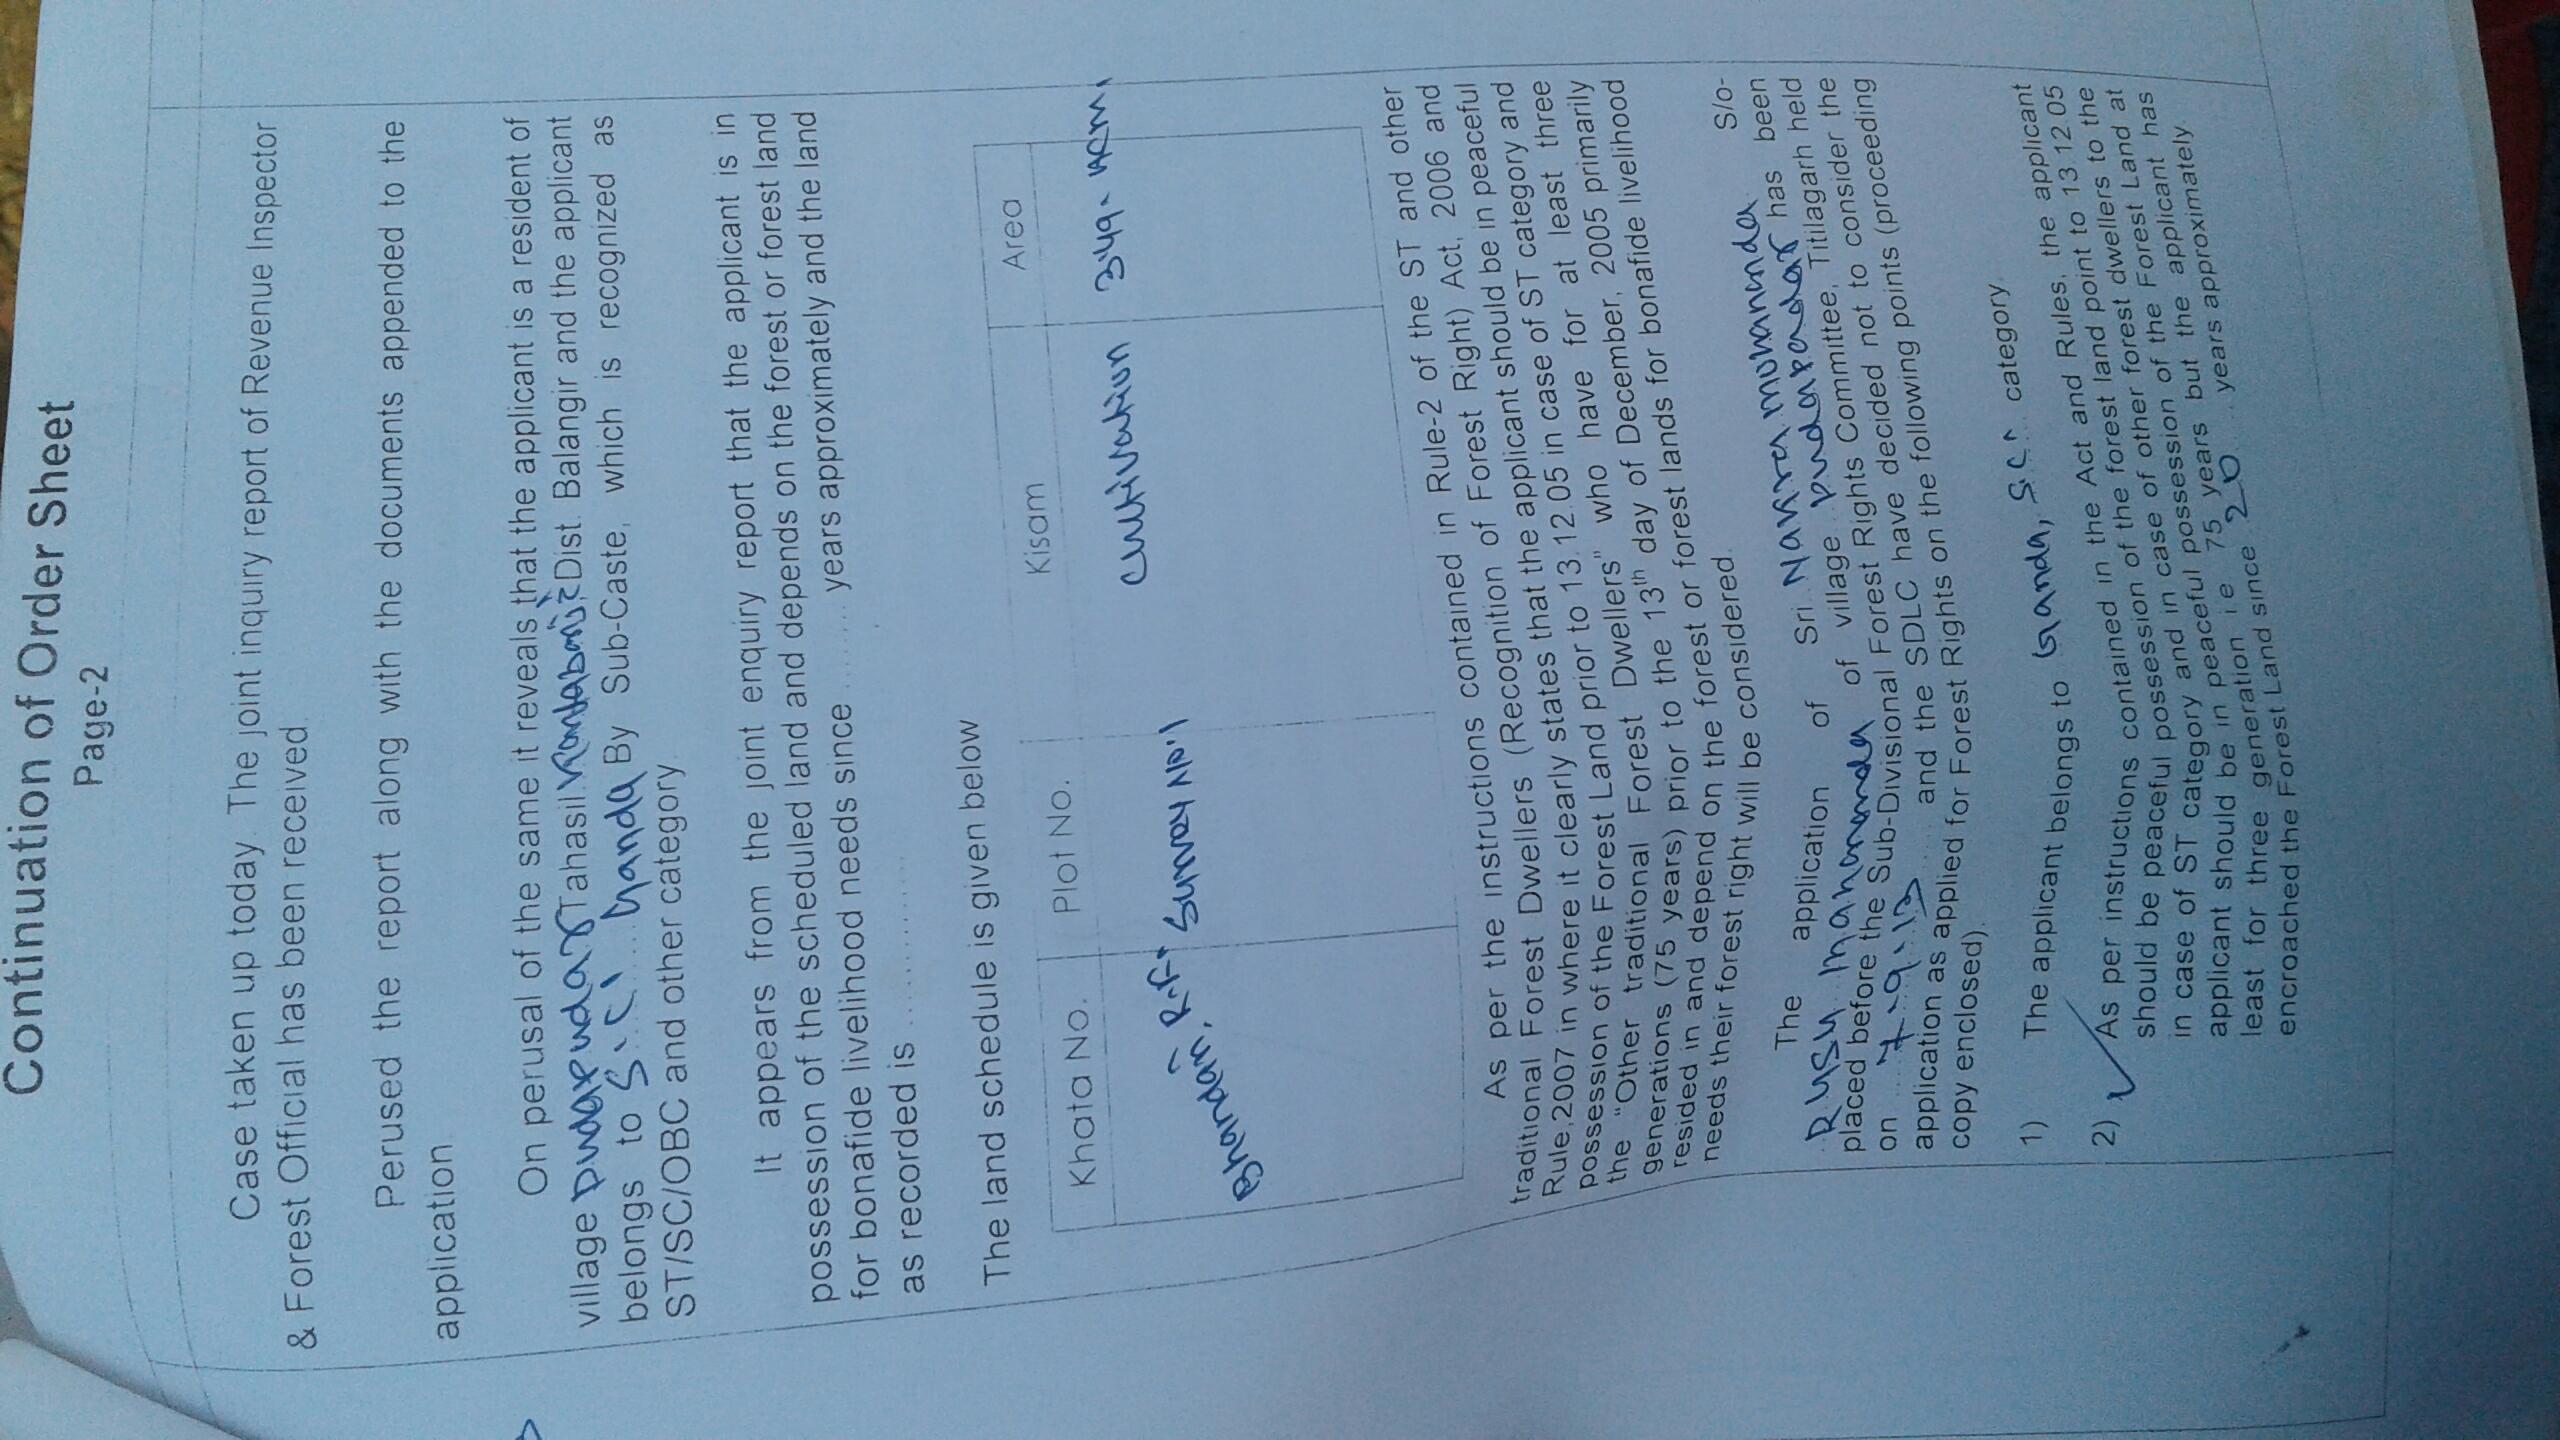 Continuation of Order Sheet
Page-2
Case taken up today. The joint inquiry report of Revenue Inspector
& Forest Official has been received.
Perused the report along with the documents appended to the
application
On perusal of the same it reveals that the applicant is a resident of
village Dudkapudar Tahasil Kantabanji Dist. Balangir and the applicant
belongs to S.C, Ganda By Sub-Caste, which is recognized as
ST/SC/OBC and other category.
It appears from the joint enquiry report that the applicant is in
possession of the scheduled land and depends on the forest or forest land
for bonafide livelihood needs since ........ years approximately and the land
as recorded is ...............
The land schedule is given below
Khata No. Plot No. Kisam Area
R.F. Survey No.1 Cultivation
As per the instructions contained in Rule-2 of the ST and other
traditional Forest Dwellers (Recognition of Forest Right) Act, 2006 and
Rule,2007 in where it clearly states that the applicant should be in peaceful
possession of the Forest Land prior to 13.12.05 in case of ST category and
the "Other traditional Forest Dwellers" who have for at least three
generations (75 years) prior to the 13th day of December, 2005 primarily
resided in and depend on the forest or forest lands for bonafide livelihood
needs their forest right will be considered.
The application of Sri S/o-
Rusy Mahananda of village Dudkapudar has been
placed before the Sub-Divisional Forest Rights Committee, Titilagarh held
on 7.9.12 and the SDLC have decided not to consider the
application as applied for Forest Rights on the following points (proceeding
copy enclosed).
1) The applicant belongs to Ganda, S.C. category.
2) As per instructions contained in the Act and Rules, the applicant
should be peaceful possession of the forest land point to 13.12.05
in case of ST category and in case of other forest dwellers to the
applicant should be in peaceful possession of the Forest Land at
least for three generation i.e 75 years but the applicant has
encroached the Forest Land since 20 years approximately